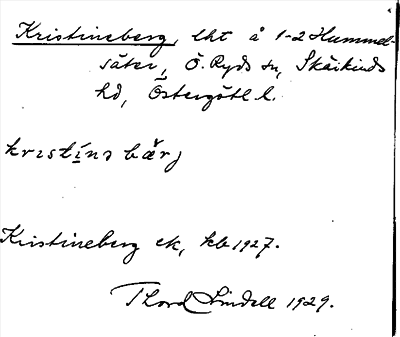 Kristineberg, lht å 1-2 Hummel-
säter, Ö. Ryds sn, Skärkinds
hd, Östergötl. l.
krıstí̱nə bæ̌rj
Kristineberg ek, kb 1927.
Thord Lindell 1929.